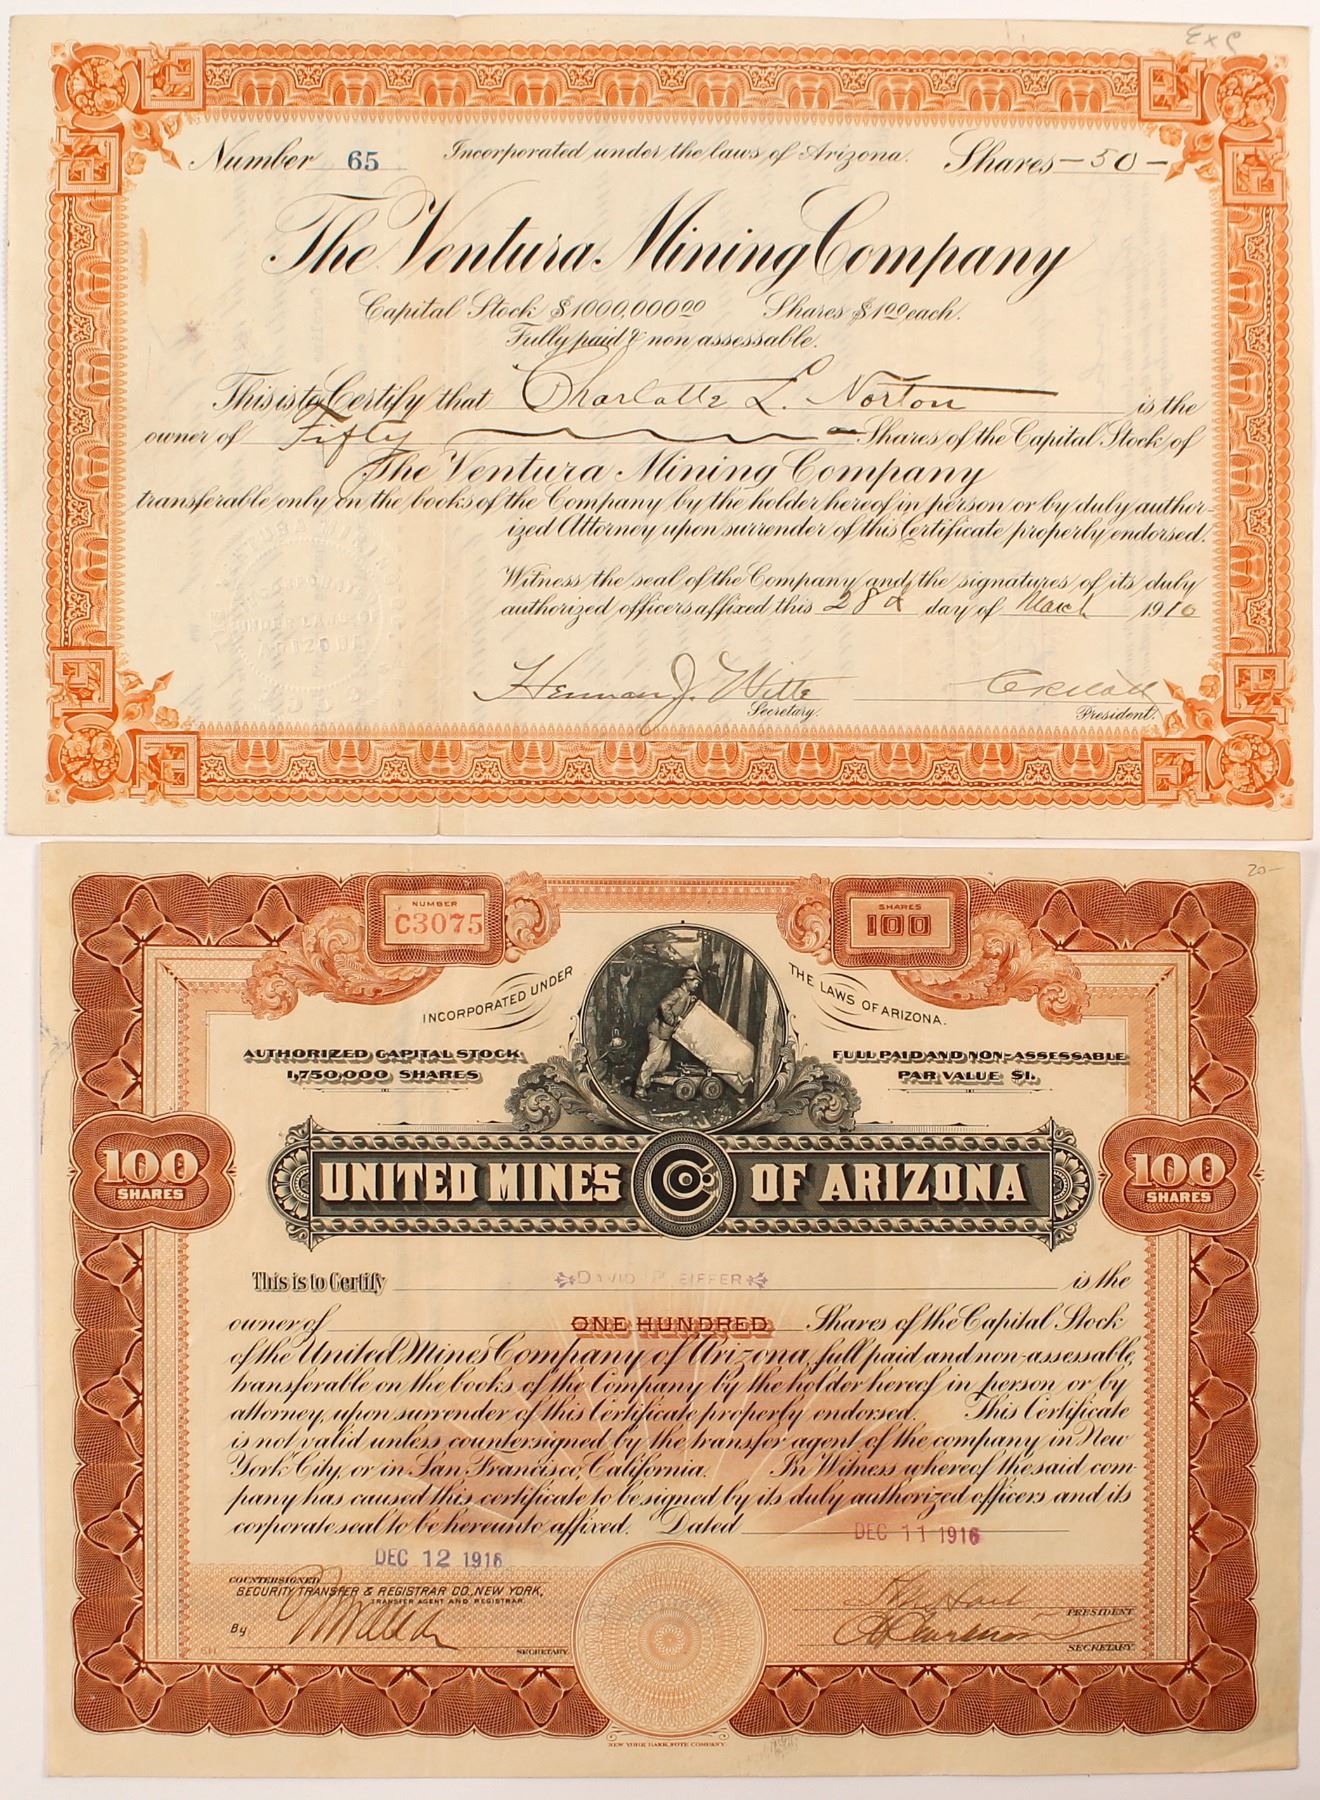 Ex9
Number 65 Incorporated under the laws of Arizona. Shares - 50 -
The Ventura Mining Company
Capital Stock $1000,000.00 Shares $1.00 each.
Fully paid & non assessable.
This is to Certify that Charlotte L. Norton is the
owner of Fifty Shares of the Capital Stock of
The Ventura Mining Company
transferable only on the books of the Company by the holder hereof in person or by duly author-
ized Attorney upon surrender of this Certificate properly endorsed.
Witness the seal of the Company and the signatures of its duly
authorized officers affixed this 28th day of March 1910
Herman J. Witte
Secretary. President.
20-
NUMBER SHARES
C3075 100
INCORPORATED UNDER THE LAWS OF ARIZONA.
AUTHORIZED CAPITAL STOCK FULL PAID AND NON-ASSESSABLE
1,750,000 SHARES PAR VALUE $1.
100 SHARES UNITED MINES Co. OF ARIZONA 100 SHARES
This is to Certify DAVID PFEIFFER is the
owner of ONE HUNDRED Shares of the Capital Stock
of the United Mines Company of Arizona, full paid and non-assessable,
transferable on the books of the Company by the holder hereof in person or by
attorney, upon surrender of this Certificate properly endorsed. This Certificate
is not valid unless countersigned by the transfer agent of the company in New
York City, or in San Francisco, California. In Witness whereof the said com-
pany has caused this certificate to be signed by its duly authorized officers and its
corporate seal to be hereunto affixed. Dated DEC 11 1916
DEC 12 1916
COUNTERSIGNED
SECURITY TRANSFER & REGISTRAR CO., NEW YORK,
TRANSFER AGENT AND REGISTRAR.
By SECRETARY. PRESIDENT
SECRETARY.
NEW YORK BANK NOTE COMPANY.